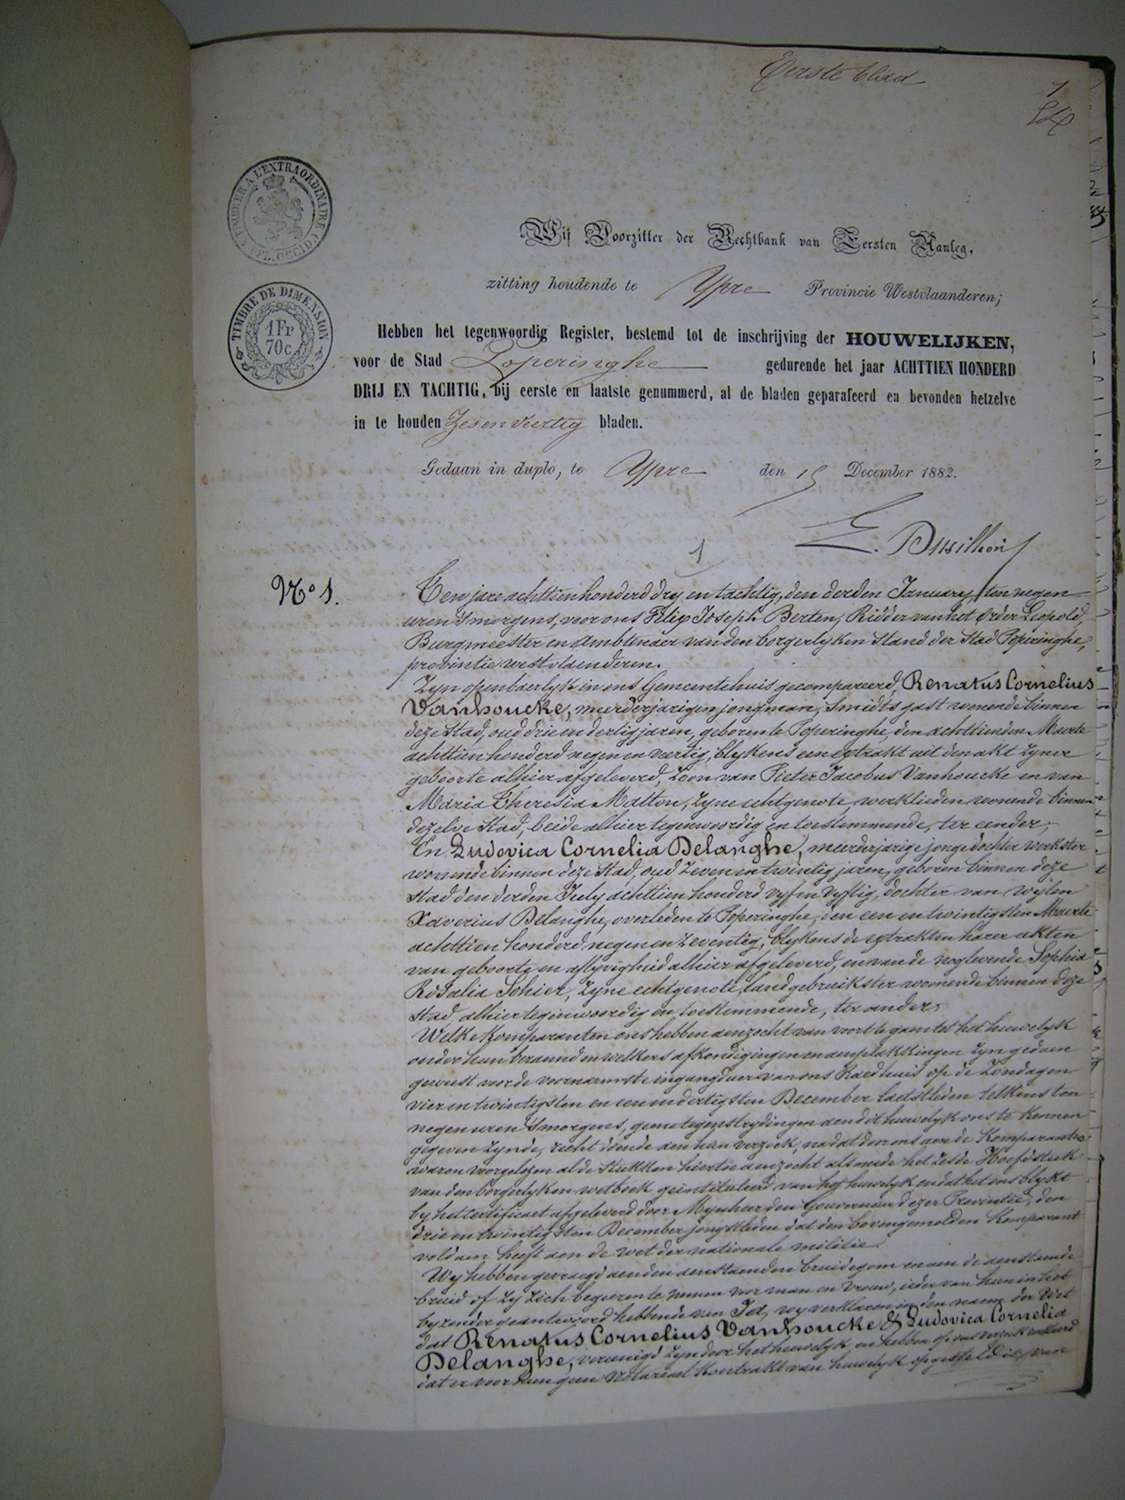 Eerste blad
1
TIMBRE A L'EXTRAORDINAIRE
TIMBRE DE DIMENSION
1 Fr
70 c.
Wij Voorzitter der Rechtbank van Eersten Aanleg,
zitting houdende te Ypre Provincie Westvlaanderen;
Hebben het tegenwoordig Register, bestemd tot de inschrijving der HOUWELIJKEN,
voor de Stad Poperinghe gedurende het jaar ACHTTIEN HONDERD
DRIJ EN TACHTIG, bij eerste en laatste genummerd, al de bladen geparafeerd en bevonden hetzelve
in te houden Zes en veertig bladen.
Gedaan in duplo, te Ypre den 15 December 1882.
1
N.º 1.
Een jare achttien honderd dry en tachtig, den derden January, ten negen
uren 's morgens, voor ons Filip Joseph Berten, Ridder van het Order Leopold,
Burgmeester en Ambtenaer van den borgerlyken Stand der Stad Poperinghe,
provintie westvlaenderen.
Zyn openbaerlyk in ons Gemeentehuis gecompareerd, Renatus Cornelius
Vanhoucke, meerderjarigen jongman, Smidts gast wonende binnen
deze Stad, oud drie en dertig jaren, geboren te Poperinghe, den achttienden Maerte
achttien honderd negen en veertig, blykens een extrakt uit den akt zyner
geboorte alhier afgeleverd, Zoon van Pieter Jacobus Vanhoucke en van
Maria Theresia Matton, Zyne echtgenote, werklieden wonende binnen
dezelve Stad, beide alhier tegenwoordig en toestemmende, ter eender;
En Ludovica Cornelia Delanghe, meerderjarige jonge dochter werkster
wonende binnen deze Stad, oud Zeven en twintig jaren, geboren binnen deze
Stad den derden July achttien honderd vyf en vyftig, dochter van wylen
Xaverius Delanghe, overleden te Poperinghe, den een en twintigsten Maerte
achttien honderd negen en Zeventig, blykens de extrakten harer akten
van geboorte en aflyvigheid alhier afgeleverd, en van de nogleevende Sophia
Rosalia Sohier, Zyne echtgenote, landgebruikster wonende binnen deze
Stad alhier tegenwoordig en toestemmende, ter ander;
Welke komparanten ons hebben aenzocht van voort te gaen tot het huwelyk
onder hun beraemd en welkers afkondigingen en aenplakkingen Zyn gedaen
geweest voor de voornaemste ingangdeur van ons Raedhuis op de Zondagen
vier en twintigsten en een en dertigsten December laetstleden telkens ten
negen uren 's morgens, geene tegenstrydingen aen dit huwelyk ons te kennen
gegeven Zynde, recht doende aen hun verzoek, na dat door ons aen de Komparanten
waren voorgelezen al de Stukken hiertoe aenzocht alsmede het Zesde Hoofdstuk
van den borgerlyken wetboek geintituleerd van het huwelyk en dat het ons blykt
by het certificaet afgeleverd door Mynheer den Gouverneur dezer Provintie, den
drie en twintigsten December jongstleden dat den bovengemelden Komparant
voldaen heeft aen de wet der nationale militie.
Wy hebben gevraegd aen den aenstaenden bruidegom en aen de aenstaende
bruid of Zy Zich begeeren te nemen voor man en Vrouw, ieder van hun in het
byzonder geantwoord hebbende van Ja, wy verklaren in den naem der Wet
dat Renatus Cornelius Vanhoucke & Ludovica Cornelia
Delanghe, vereenigd Zyn door het huwelyk en hebben op ons
dat er voor hun geen notariael kontrakt van huwelyk opgesteld is, van